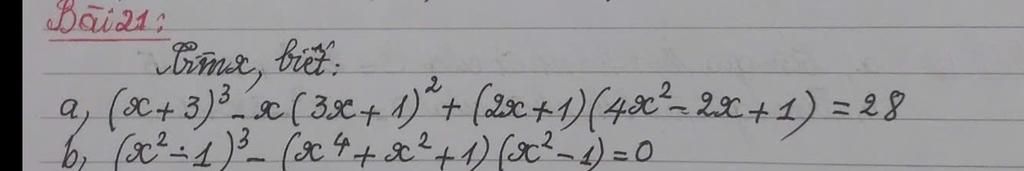 Bài 21:
Tìm x, biết:
a, (x + 3)³ - x (3x + 1)² + (2x + 1) (4x² - 2x + 1) = 28
b, (x² - 1)³ - (x⁴ + x² + 1) (x² - 1) = 0